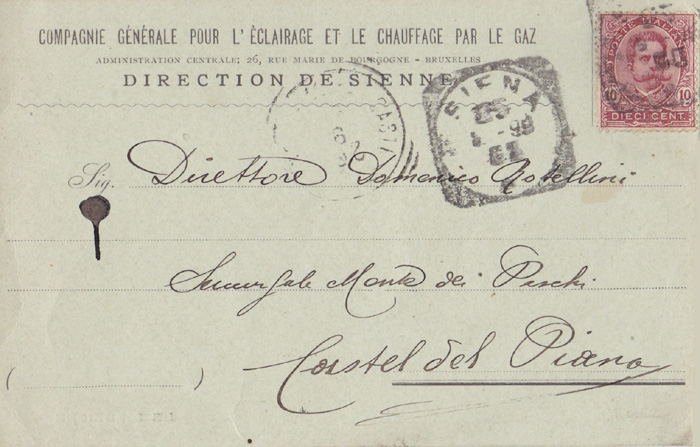 COMPAGNIE GÉNÉRALE POUR L'ÉCLAIRAGE ET LE CHAUFFAGE PAR LE GAZ
ADMINISTRATION CENTRALE; 26, RUE MARIE DE BOURGOGNE - BRUXELLES
DIRECTION DE SIENNE
POSTE ITALIANE
10 10
DIECI CENT.
SIENA
98
CAST
Sig. Direttore Domenico Rotellini
Succursale Monte dei Paschi
Castel del Piano
( )